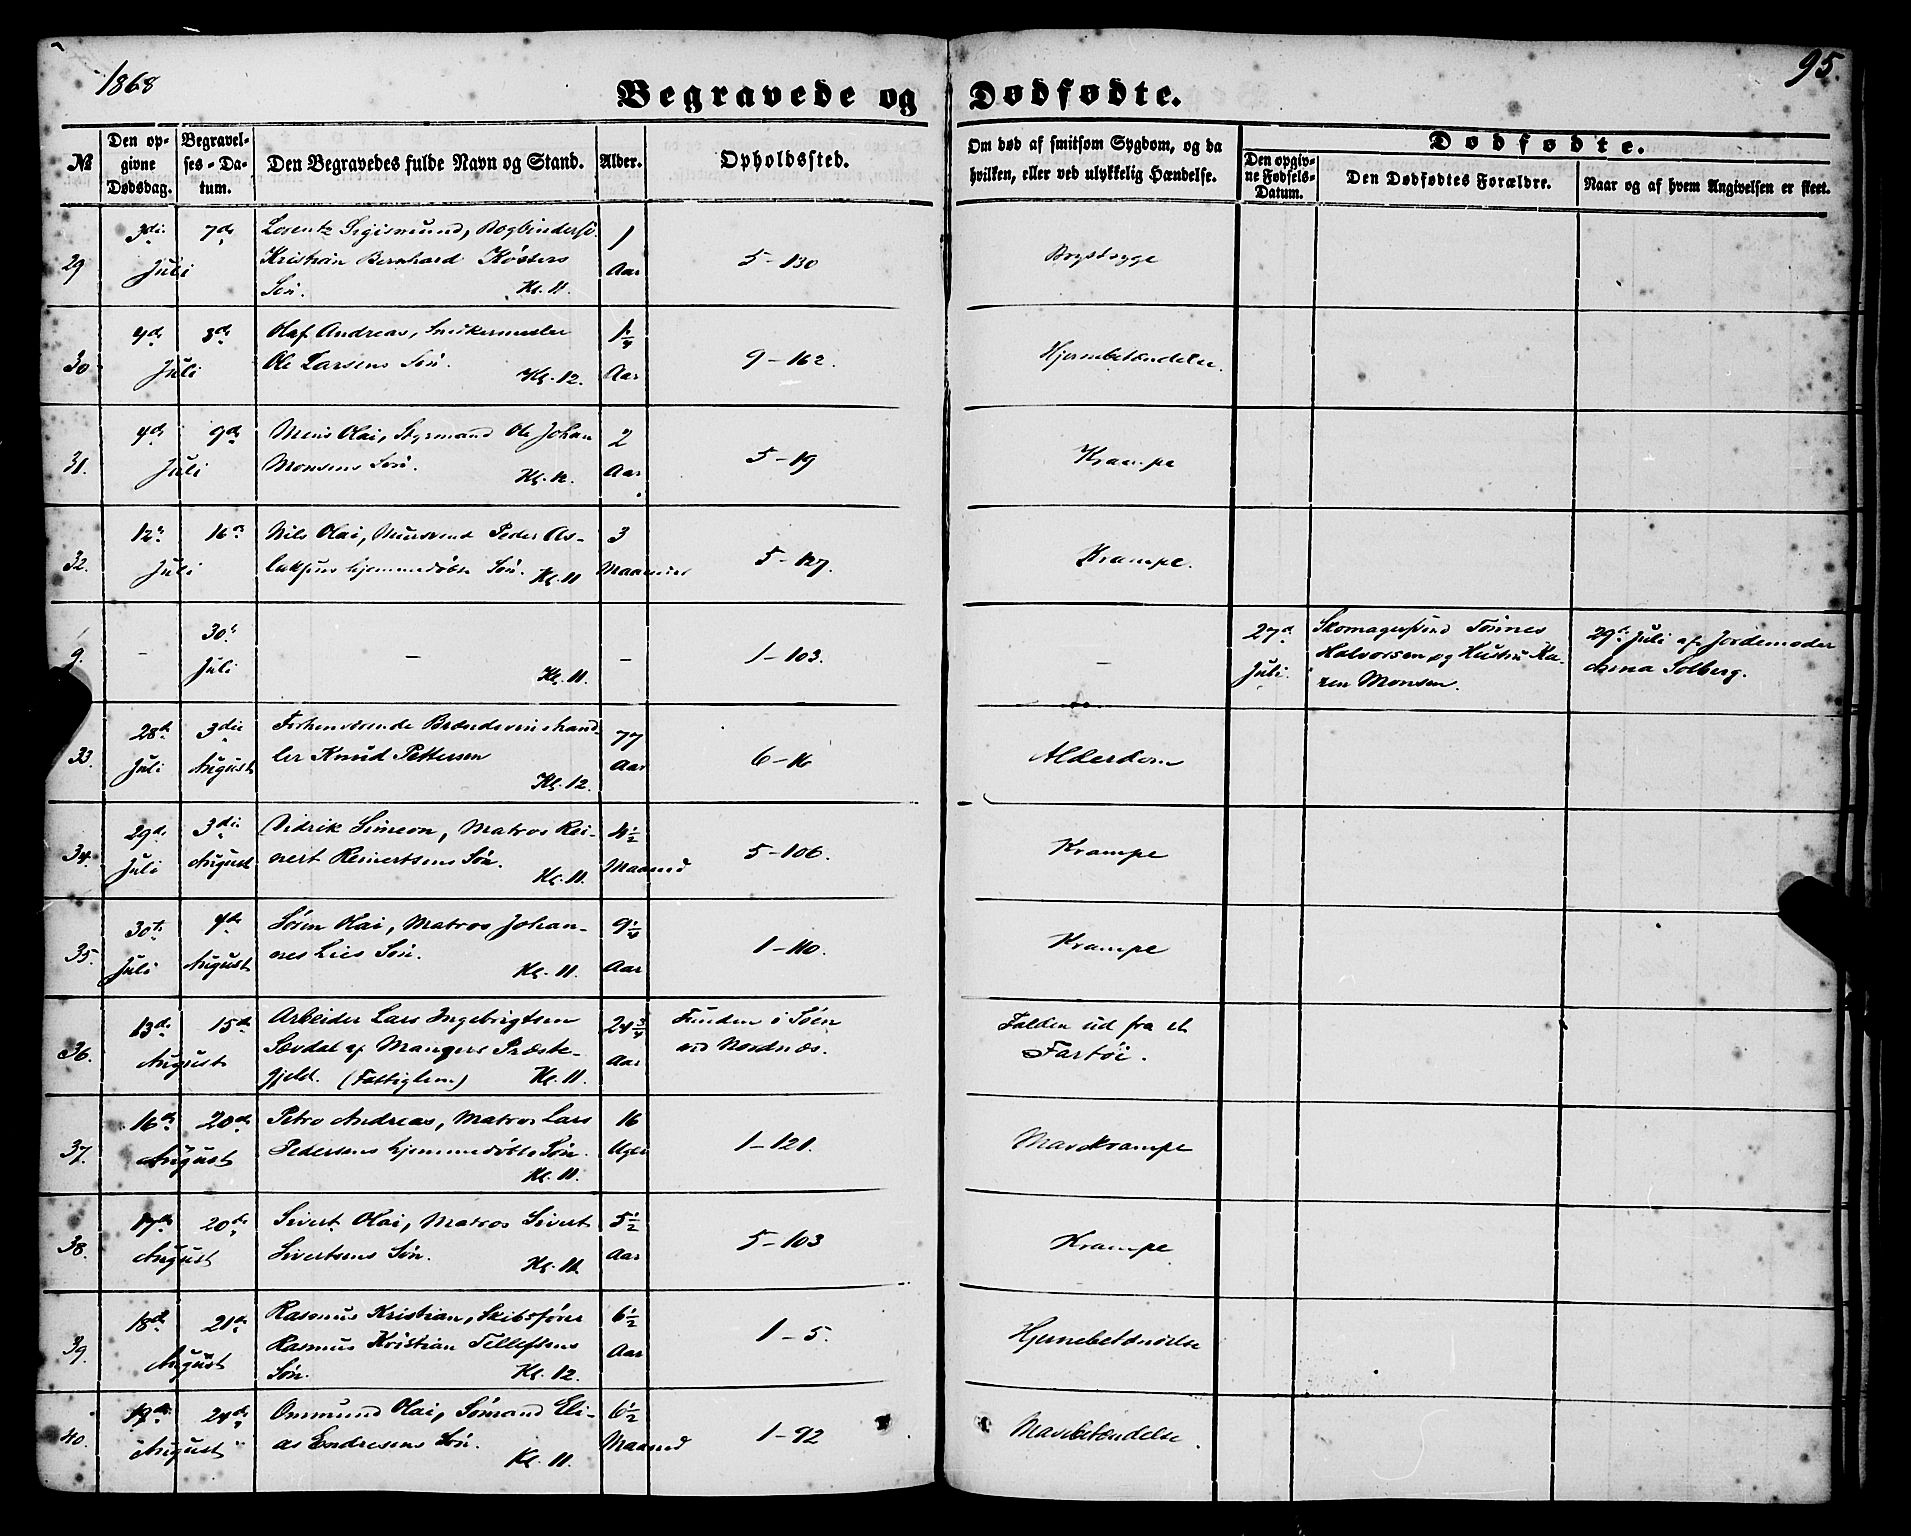 1868
95.
Begravede og Dødfødte.
№
Den opgivne Dødsdag.
Begravelses-Datum.
Den Begravedes fulde Navn og Stand.
Alder.
Opholdssted.
Om død af smitsom Sygdom, og da hvilken, eller ved ulykkelig Hændelse.
Dødfødte.
Den opgivne Fødsels-Datum.
Den Dødfødtes Forældre.
Naar og af hvem Angivelsen er skeet.
29
3die 7de
Juli
Lorentz Sigismund, Bogbindersv.
Kristian Bernhard Kösters
Sön. Kl. 11.
1
Aar
5-130
Brystsyge
30
4de 8de
Juli
Olaf Andreas, Snekermester
Ole Larsens Sön. Kl. 12.
1 1/4
Aar
9-162.
Hjernebetændelse.
31.
4de 9de
Juli
Mons Olai, Styrmand Ole Johan
Monsens Sön. Kl. 12.
2
Aar
5-19
Krampe
32.
12te 16de
Juli
Nils Olai, Muursvend Peder As-
laksens hjemmedöbte Sön. Kl. 11
3
Maaneder
5-127.
Krampe.
9.
-
30te
Juli
-
Kl. 11.
-
1-103.
-
27de
Juli.
Skomagersvend Tönnes
Halvorsen og Hustru Ka-
ren Monsen.
29de Juli af Jordemoder
Anna Solberg.
33.
28de 3die
Juli August
Forhenværende Brændeviinshand-
ler Knud Pettersen
Kl. 12.
77
Aar
6-16
Alderdom
34.
29de 3die
Juli August
Didrik Simeon, Matros Rei-
nert Reinertsens Sön.
Kl. 11.
4 1/2
Maaned
5-106.
Krampe
35.
30te 4de
Juli August
Sören Olai, Matros Johan-
nes Lies Sön.
Kl. 11.
9 1/4
Aar
1-110.
Krampe
36.
13de 15de
August
Arbeider Lars Ingebrigtsen
Sævdal af Mangers Præste-
gjeld. (Fattiglem) Kl. 11.
24 3/4
Aar
Funden i Söen
ved Nordnæs.
Falden ud fra et
Fartöi.
37.
16de 20de
August
Petro Andreas, Matros Lars
Pedersens hjemmedöbte Sön.
Kl. 11.
16
Uger
1-121.
Mavekrampe
38.
17de 20de
August
Sivert Olai, Matros Sivert
Sivertsens Sön.
Kl. 11.
5 1/2
Aar
5-103
Krampe
39.
18de 21de
August
Rasmus Kristian, Skibsförer
Rasmus Kristian Tellefsens
Sön. Kl. 12.
6 1/2
Aar
1-5.
Hjernebetændelse
40.
19de 24de
August
Ommund Olai, Sömand Eli-
as Endresens Sön.
Kl. 11.
6 1/2
Maaned
1-92
Mavebetændelse.